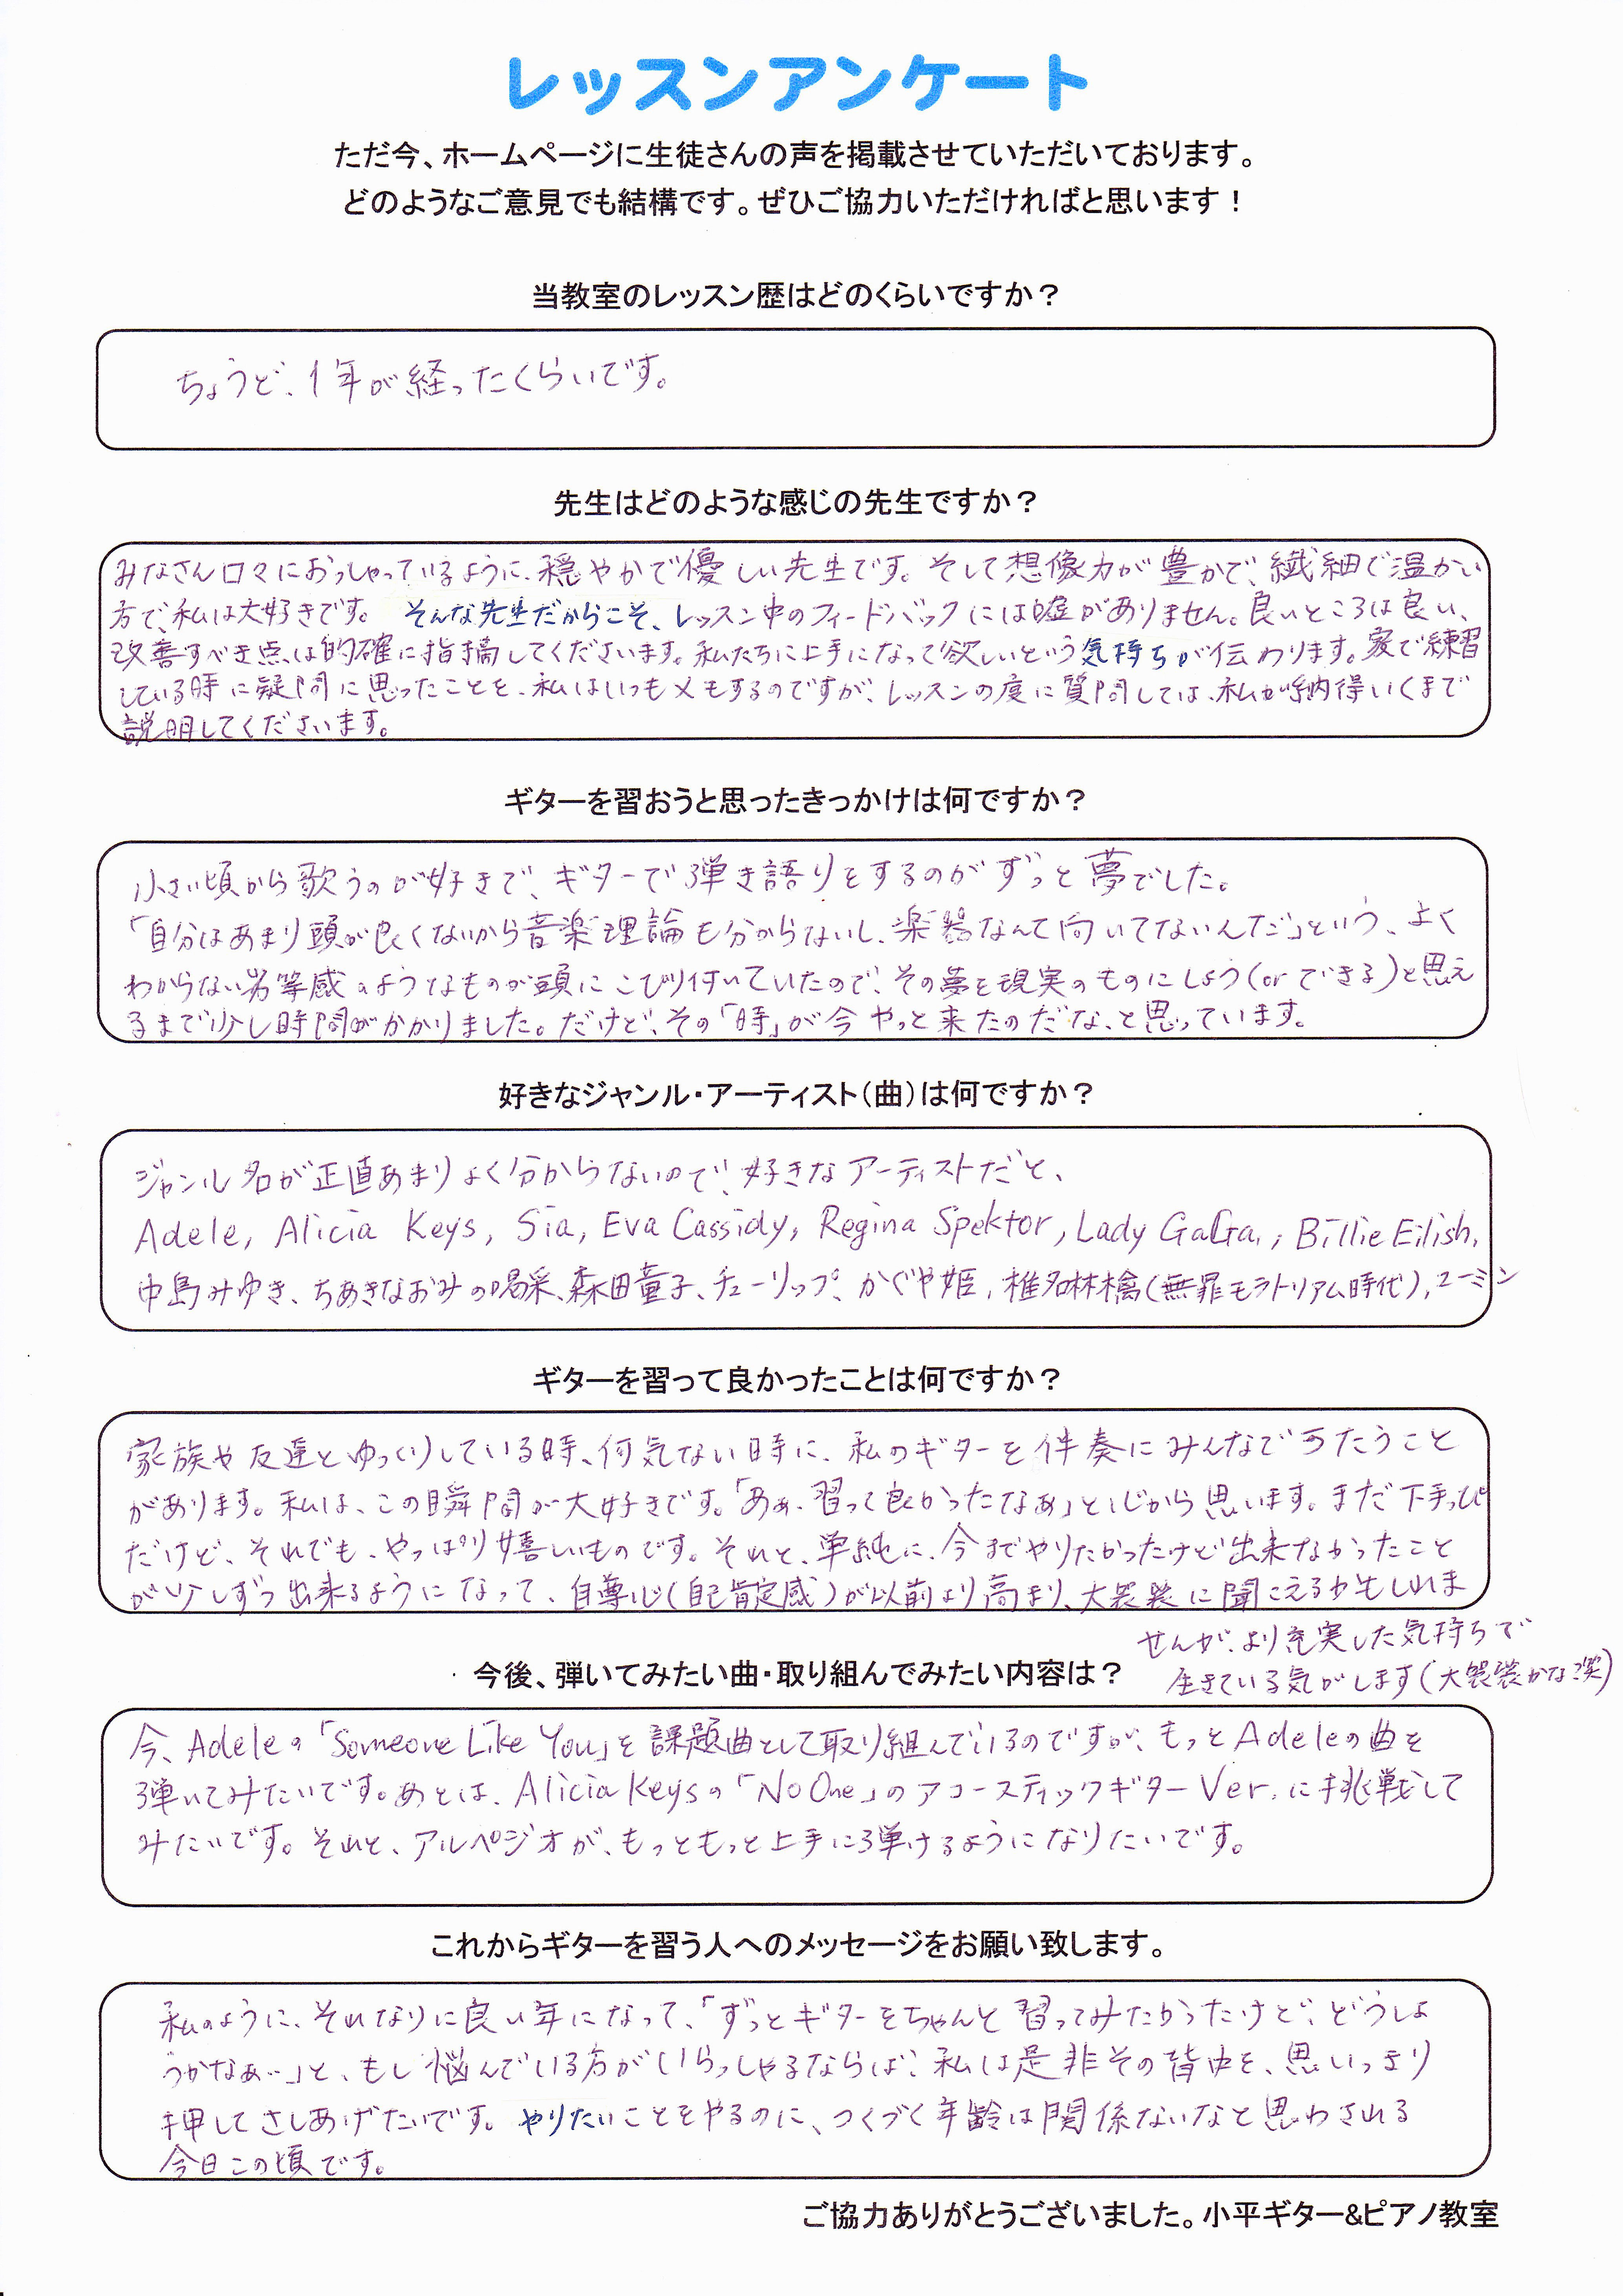 レッスンアンケート
ただ今、ホームページに生徒さんの声を掲載させていただいております。
どのようなご意見でも結構です。ぜひご協力いただければと思います！
当教室のレッスン歴はどのくらいですか？
ちょうど、1年が経ったくらいです。
先生はどのような感じの先生ですか？
みなさん口々におっしゃっているように、穏やかで優しい先生です。そして想像力が豊かで、繊細で温かい
方で、私は大好きです。 そんな先生だからこそ、レッスン中のフィードバックには嘘がありません。良いところは良い、
改善すべき点は的確に指摘してくださいます。私たちに上手になって欲しいという気持ちが伝わります。家で練習
している時に疑問に思ったことを、私はいつもメモするのですが、レッスンの度に質問しては、私が納得いくまで
説明してくださいます。
ギターを習おうと思ったきっかけは何ですか？
小さい頃から歌うのが好きで、ギターで弾き語りをするのがずっと夢でした。
「自分はあまり頭が良くないから音楽理論も分からないし、楽器なんて向いてないんだ」という、よく
わからない劣等感のようなものが頭にこびり付いていたので、その夢を現実のものにしよう(orできる)と思え
るまで少し時間がかかりました。だけど、その「時」が今やっと来たのだな、と思っています。
好きなジャンル・アーティスト（曲）は何ですか？
ジャンル名が正直あまりよく分からないので、好きなアーティストだと、
Adele, Alicia Keys, Sia, Eva Cassidy, Regina Spektor, Lady GaGa, Billie Eilish,
中島みゆき、ちあきなおみの喝采、森田童子、チューリップ、かぐや姫、椎名林檎(無罪モラトリアム時代)、ユーミン
ギターを習って良かったことは何ですか？
家族や友達とゆっくりしている時、何気ない時に、私のギターを伴奏にみんなでうたうこと
があります。私は、この瞬間が大好きです。「あぁ、習って良かったなぁ」と心から思います。まだ下手っぴ
だけど、それでも、やっぱり嬉しいものです。それと、単純に、今までやりたかったけど出来なかったこと
が少しずつ出来るようになって、自尊心(自己肯定感)が以前より高まり、大袈裟に聞こえるかもしれま
せんが、より充実した気持ちで
生きている気がします(大袈裟かな？笑)
今後、弾いてみたい曲・取り組んでみたい内容は？
今、Adeleの「Someone Like You」を課題曲として取り組んでいるのですが、もっとAdeleの曲を
弾いてみたいです。あとは、Alicia Keysの「No One」のアコースティックギターVer.に挑戦して
みたいです。それと、アルペジオが、もっともっと上手に弾けるようになりたいです。
これからギターを習う人へのメッセージをお願い致します。
私のように、それなりに良い年になって、「ずっとギターをちゃんと習ってみたかったけど、どうしよ
うかなぁ…」と、もし悩んでいる方がいらっしゃるならば、私は是非その背中を、思いっきり
押してさしあげたいです。やりたいことをやるのに、つくづく年齢は関係ないなと思わされる
今日この頃です。
ご協力ありがとうございました。小平ギター&ピアノ教室